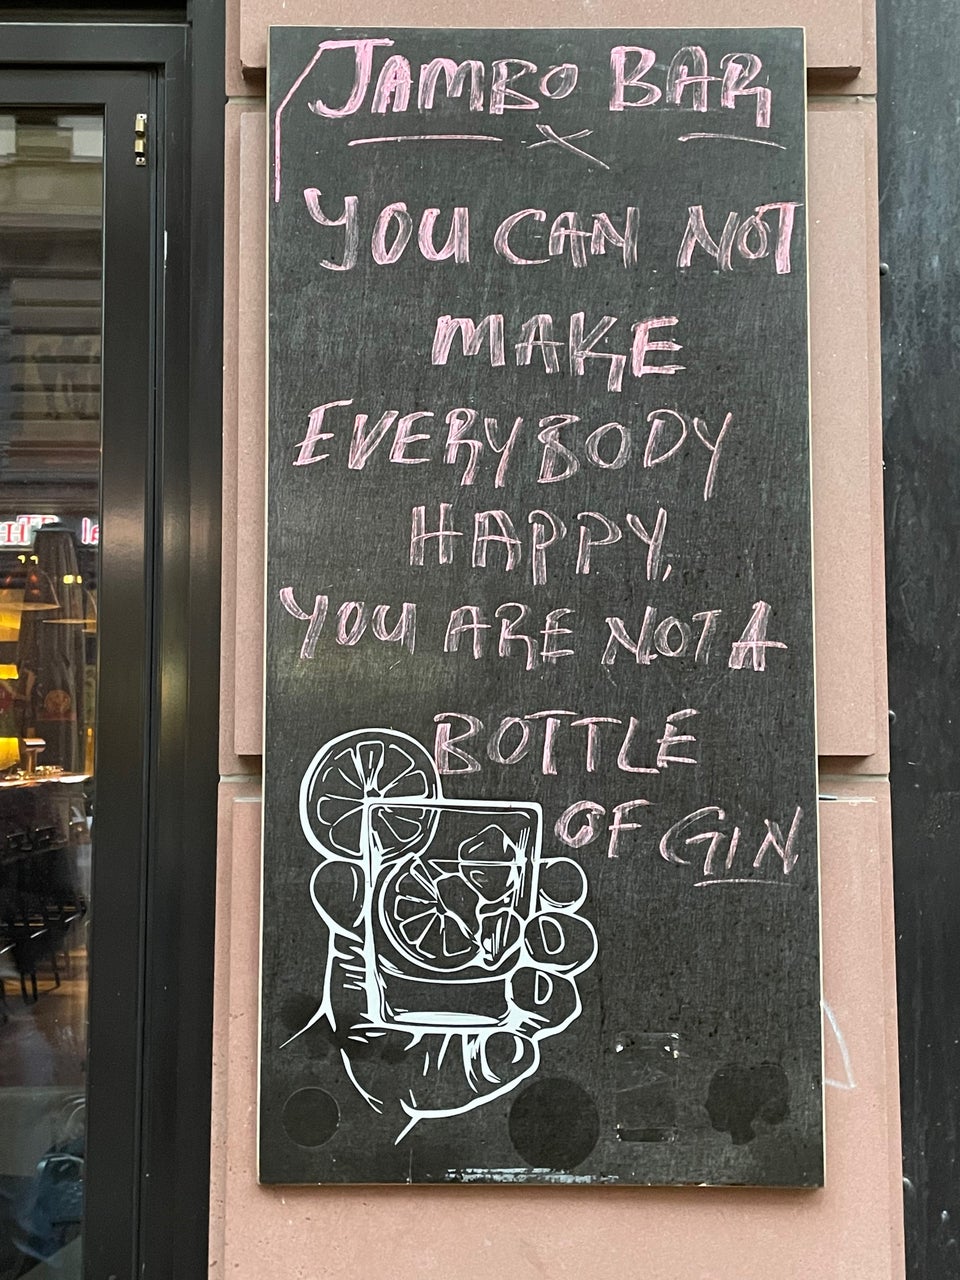 JAMBO BAR
YOU CAN NOT
MAKE
EVERYBODY
HAPPY,
YOU ARE NOT A
BOTTLE
OF GIN